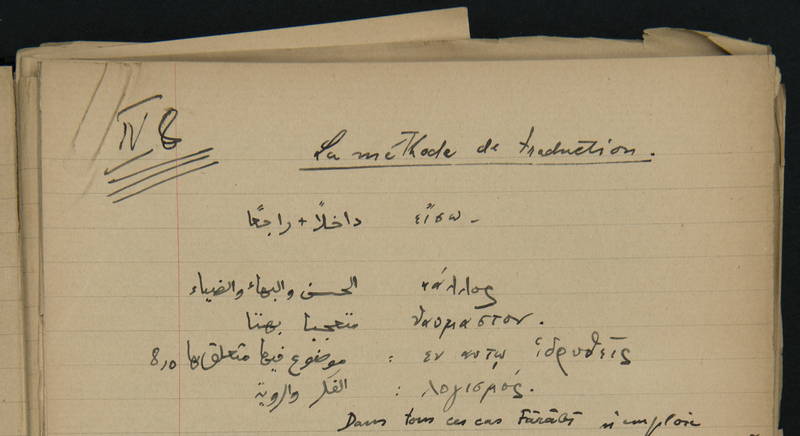 IV B
La méthode de traduction.
داخلاً + راجعًا εἴσω -
الحسن والبهاء والضياء κάλλος
متعجبا بهتا θαυμαστον.
8,10 موضوع فيها متعلق بها : εν αυτῳ ἱδρυθεὶς
الفكر والروية : λογισμός.
Dans tous ces cas Fārābī n'emploie